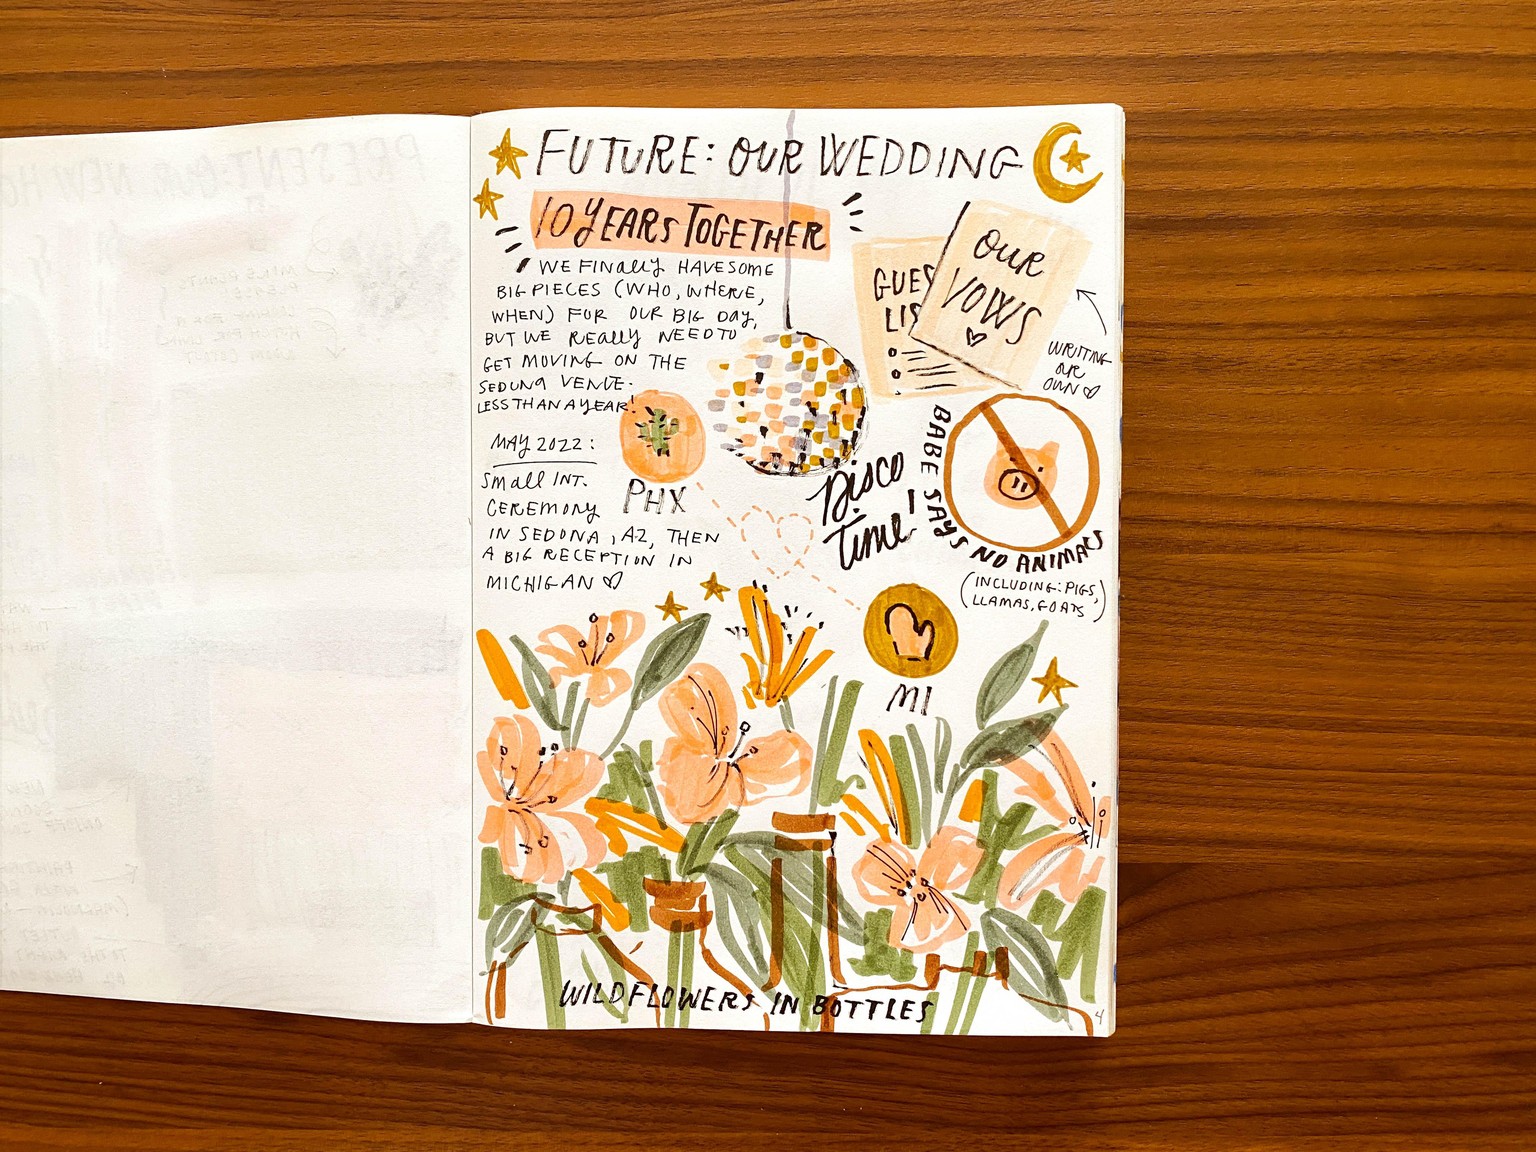 FUTURE: OUR WEDDING
10 YEARS TOGETHER
WE FINALLY HAVE SOME
BIG PIECES (WHO, WHERE,
WHEN) FOR OUR BIG DAY,
BUT WE REALLY NEED TO
GET MOVING ON THE
SEDONA VENUE.
LESS THAN A YEAR!
MAY 2022:
SMALL INT.
CEREMONY
IN SEDONA, AZ, THEN
A BIG RECEPTION IN
MICHIGAN
PHX
GUES
LIS
OUR
VOWS
WRITING
OUR
OWN
DISCO
TIME!
BABE SAYS NO ANIMALS
(INCLUDING: PIGS,
LLAMAS, GOATS)
MI
WILDFLOWERS IN BOTTLES
4
PRESENT: OUR NEW HO